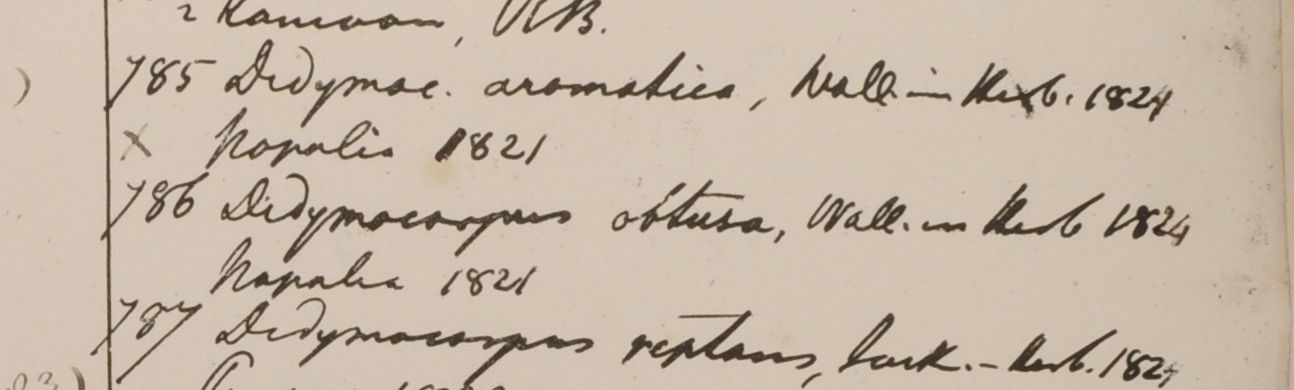 2 Kamoon, RB.
785 Didymoc. aromatica, Wall. in Herb. 1824
x Napalia 1821
786 Didymocarpus obtusa, Wall. in Herb 1824
Napalia 1821
787 Didymocarpus reptans, Jack. - Herb. 1824